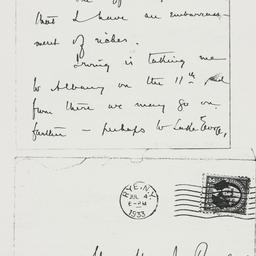 that I have an embarrass-
ment of riches.
Irving is taking me
to Albany on the 11th and
from there we may go on
further – perhaps to Lake George,
RYE, N.Y.
JUL 4
6-PM
1933